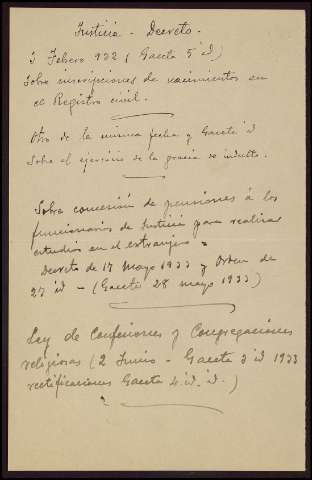 Justicia - Decreto.
3 Febrero 932 (Gaceta 5 id)
Sobre inscripciones de nacimientos en
el Registro civil.
Otro de la misma fecha y Gaceta id
Sobre el ejercicio de la gracia de indulto.
Sobre concesión de pensiones á los
funcionarios de Justicia para realizar
estudios en el extranjero
Decreto de 17 Mayo 1933 y Orden de
27 id - (Gaceta 28 mayo 1933)
Ley de Confesiones y Congregaciones
religiosas (2 Junio - Gaceta 3 id 1933
rectificaciones Gaceta 4 id. id.)